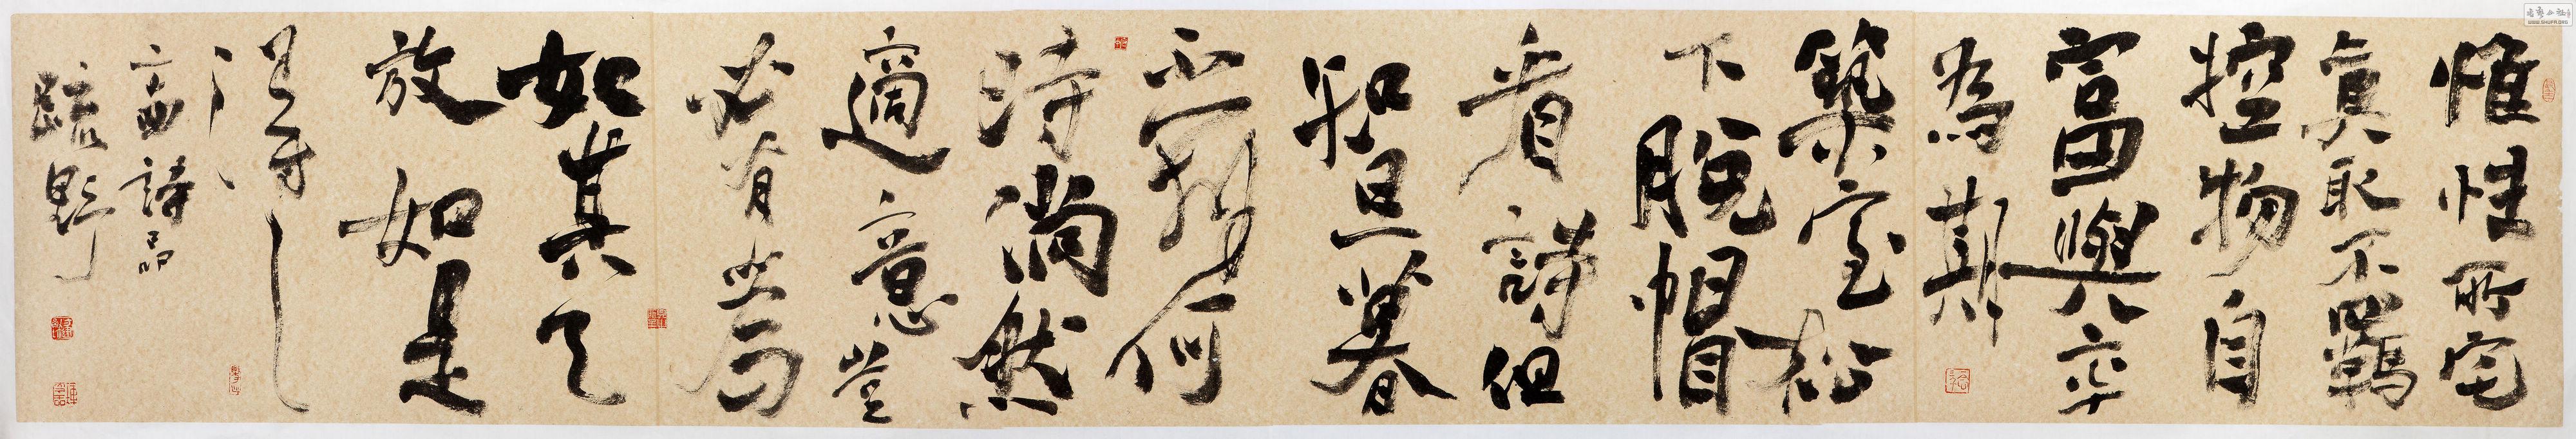 惟性所宅
真取不羈
控物自
富與率
為期
築室松
下脫帽
看詩但
知旦暮
不辨何
時倘然
適意豈
必有為
如其天
放如是
得之
詩品
疏野
WWW.SHUFA.ORG